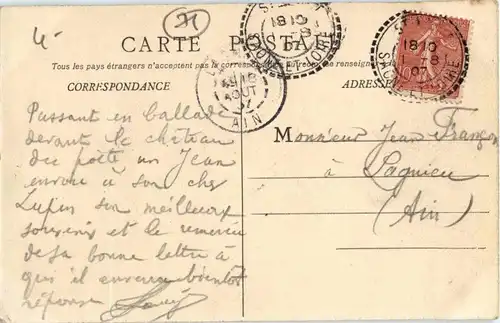 71
CARTE POSTALE
Tous les pays étrangers n'acceptent pas la correspondance au
CORRESPONDANCE
ADRESSE
18 10
1 - 8
07
SAONE ET LOIRE
AOUT
07
AIN
Passant en ballade
devant le château
du poète un Jean
envoie à son cher
Lupin son meilleur
souvenir et le remercie
de sa bonne lettre à
qui il enverra bientôt
réponse
Monsieur Jean François
à Lagnieu
(Ain)